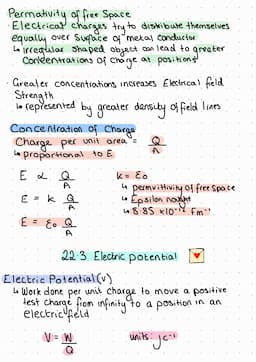 Permativity of free Space
Electrical charges try to distribute themselves
equally over surface of metal conductor
↳ irregular shaped object can lead to greater
concentrations of charge at positions
· Greater concentrations increases Electrical field
Strength
↳ represented by greater density of field lines
Concentration of Charge
Charge per unit area = Q/A
↳ proportional to E
E ∝ Q/A
k = ε₀
↳ permittivity of free space
E = k Q/A
↳ Epsilon nought
↳ 8.85 ×10⁻¹² Fm⁻¹
E = ε₀ Q/A
22.3 Electric potential
Electric Potential (V)
↳ Work done per unit charge to move a positive
test charge from infinity to a position in an
electric field
V = W/Q
units: JC⁻¹